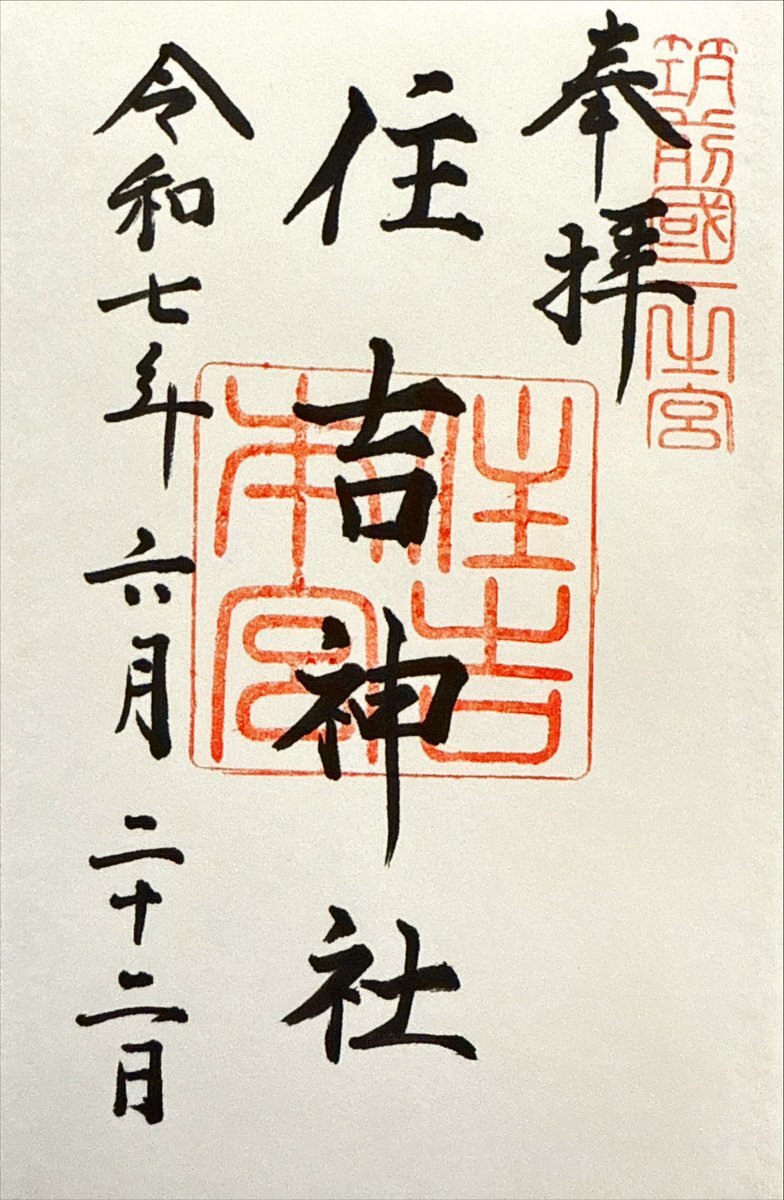 筑前國一之宮
奉拝
住吉神社
住吉本宮
令和七年六月二十二日